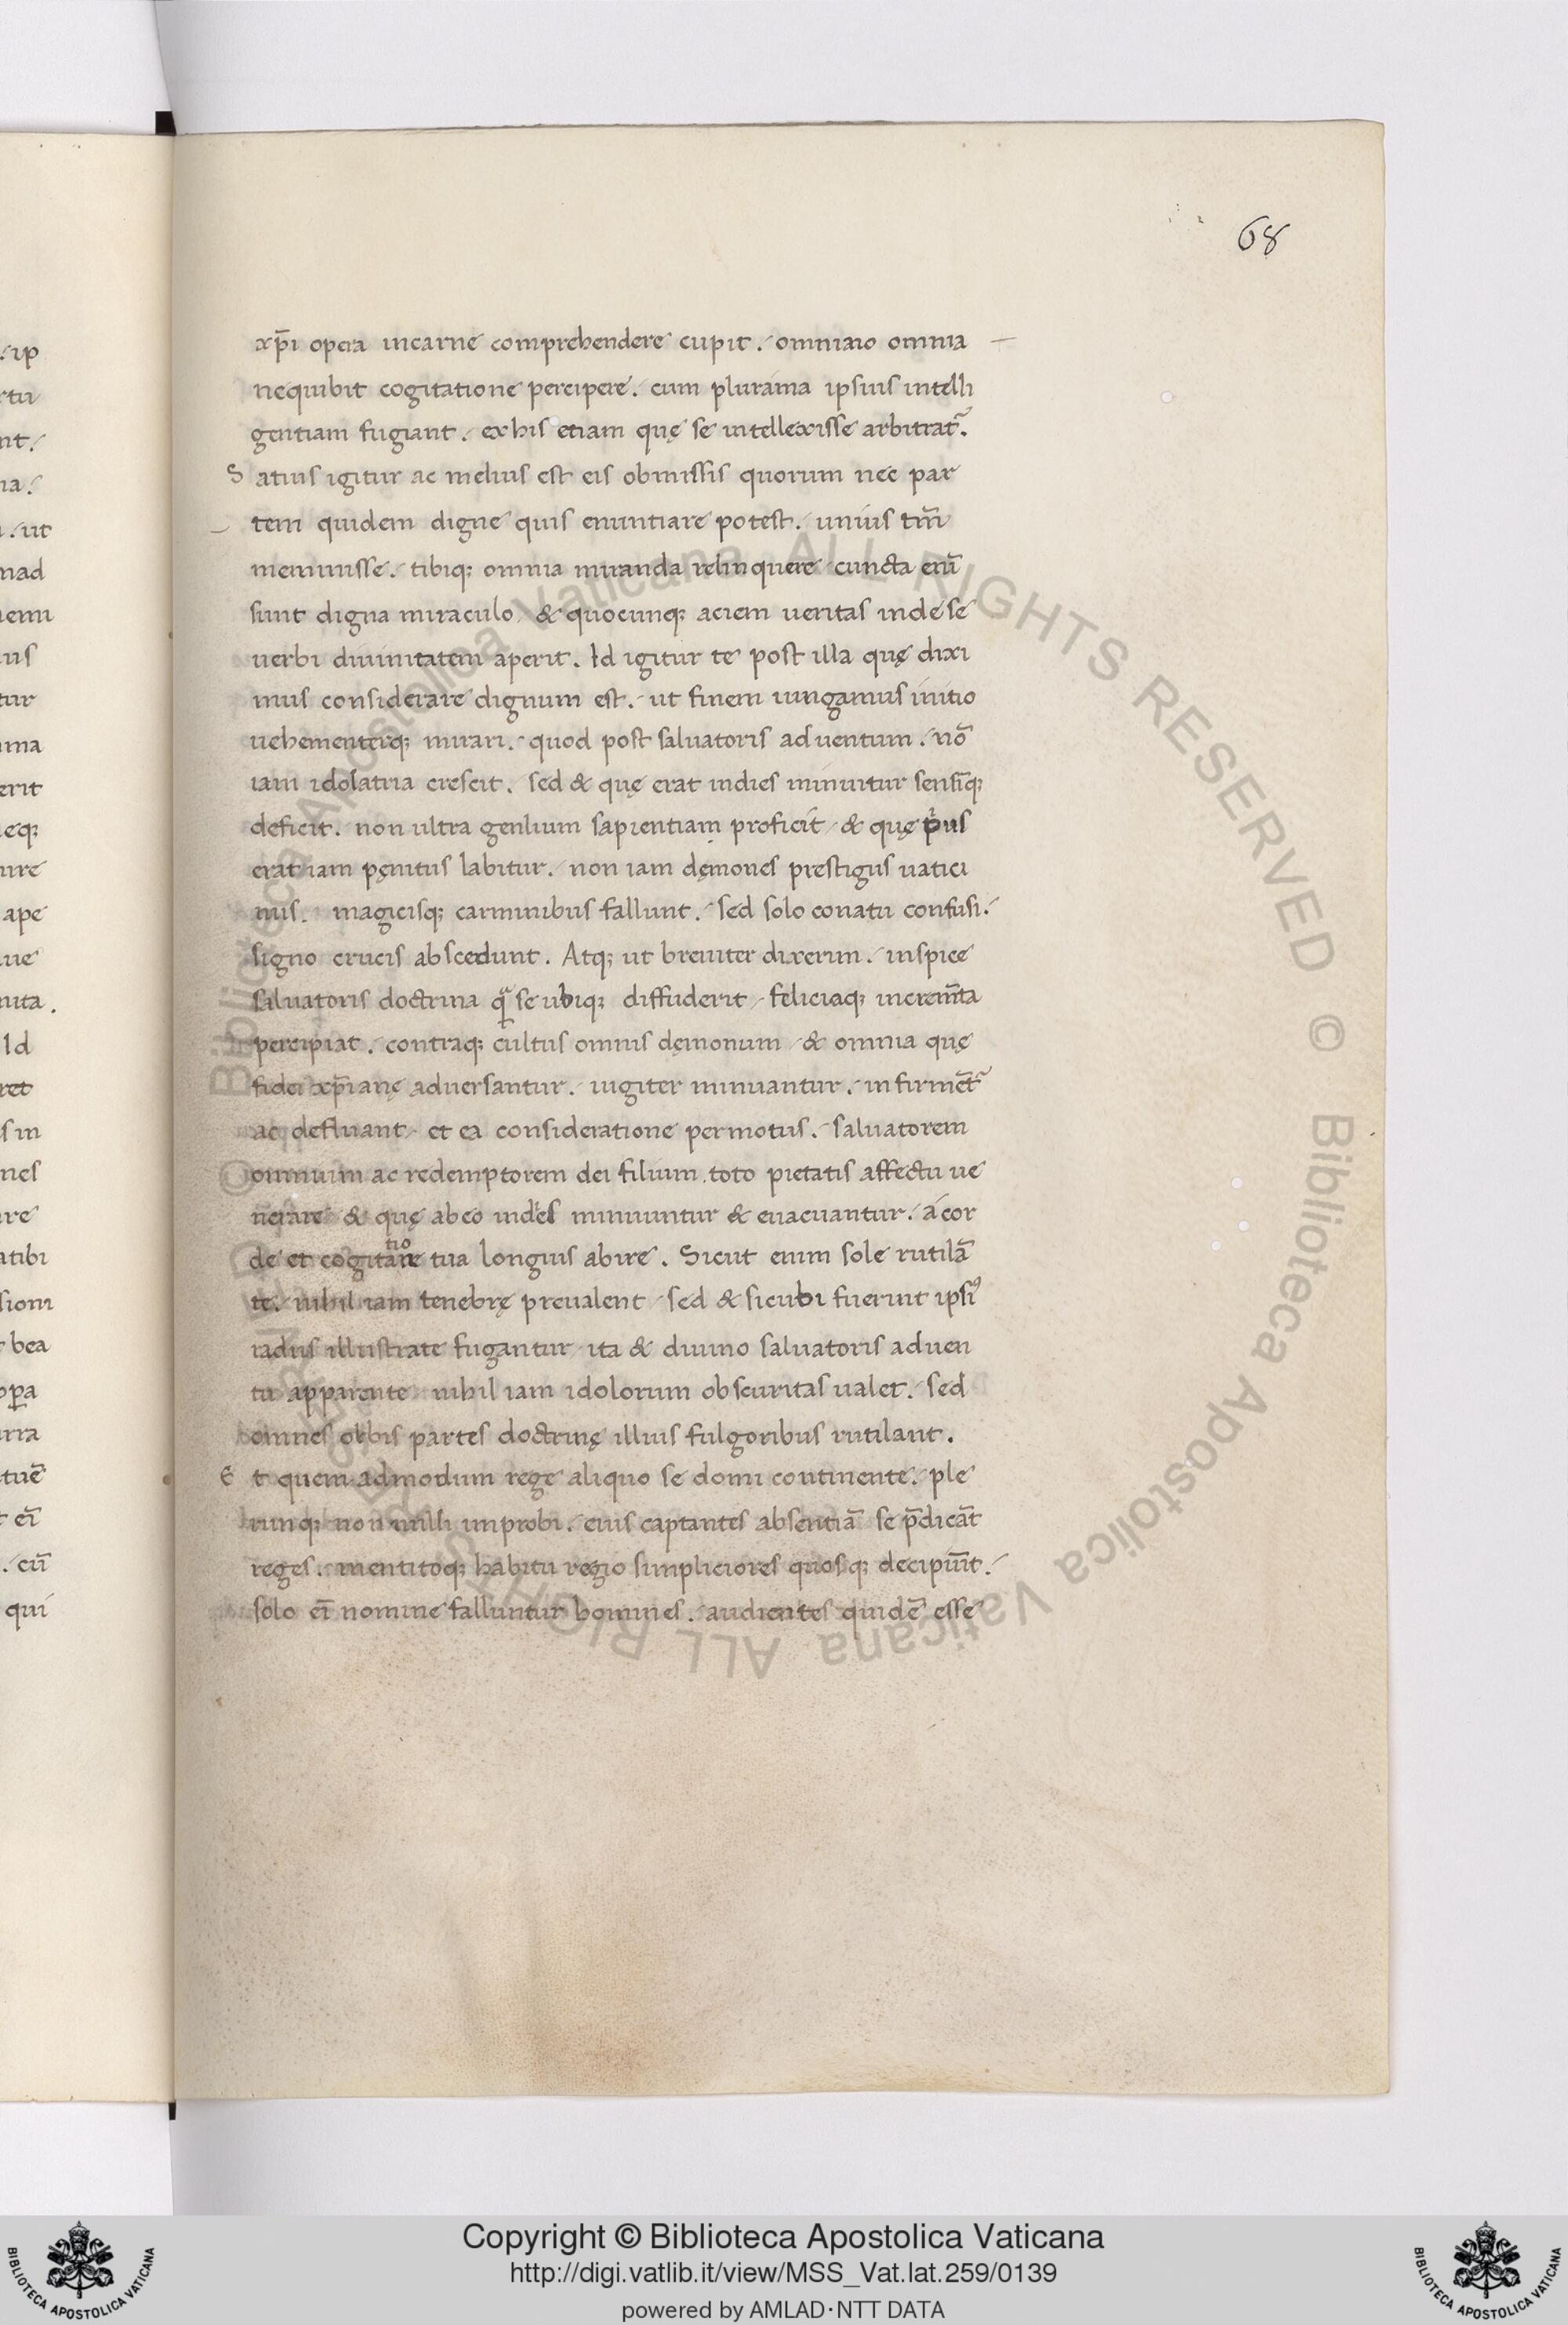 68
xp̄i opera incarne comprehendere cupit. omnino omnia
nequibit cogitatione percipere. cum plurima ipsius intelli
gentiam fugiant. exhis etiam quę se intellexisse arbitrat᷑.
Satius igitur ac melius est eis obmissis quorum nec par
tem quidem digne quis enuntiare potest. unius tm̄
meminisse. tibiq; omnia miranda relinquere cuncta eni᷑
sunt digna miraculo & quocunq; aciem ueritas indese
uerbi diuinitatem aperit. Id igitur te post illa quę dixi
mus considerare dignum est. ut finem iungamus initio
uehementerq; mirari. quod post saluatoris aduentum. nō
iam idolatria crescit. sed & quę erat indies minuitur sensīq;
deficit. non ultra gentium sapientiam proficit & quę prius
erat iam pęnitus labitur. non iam dęmones prestigiis uatici
niis. magicisq; carminibus fallunt. sed solo conatu confusi.
signo crucis abscedunt. Atq; ut breuiter dixerim. inspice
saluatoris doctrina q̄ se ubiq; diffuderit feliciaq; increm̄ta
percipiat. contraq; cultus omnis dęmonum & omnia quę
fidei xp̄ianę aduersantur. iugiter minuantur. infirmēt᷑
ac defluant et ea consideratione permotus. saluatorem
omnium ac redemptorem dei filium toto pietatis affectu ue
nerare & quę abeo indies minuuntur & euacuantur. a cor
de et cogitatione tua longius abire. Sicut enim sole rutilā
te. nihil iam tenebrę preualent sed & sicubi fuerint ipsi᾽
radiis illustrate fugantur ita & diuino saluatoris aduen
tu apparente nihil iam idolorum obscuritas ualet. sed
omnes orbis partes doctrinę illius fulgoribus rutilant.
Et quemadmodum rege aliquo se domi continente. ple
runq; non nulli improbi. eius captantes absentiā se p̄dicāt
reges. mentitoq; habitu regio simpliciores quosq; decipiūt.
solo ei᷑ nomine falluntur homines. audientes quidē esse
Copyright © Biblioteca Apostolica Vaticana
http://digi.vatlib.it/view/MSS_Vat.lat.259/0139
powered by AMLAD·NTT DATA
BIBLIOTECA APOSTOLICA VATICANA
BIBLIOTECA APOSTOLICA VATICANA
© Biblioteca Apostolica Vaticana ALL RIGHTS RESERVED © Biblioteca Apostolica Vaticana ALL RIGHTS RESERVED